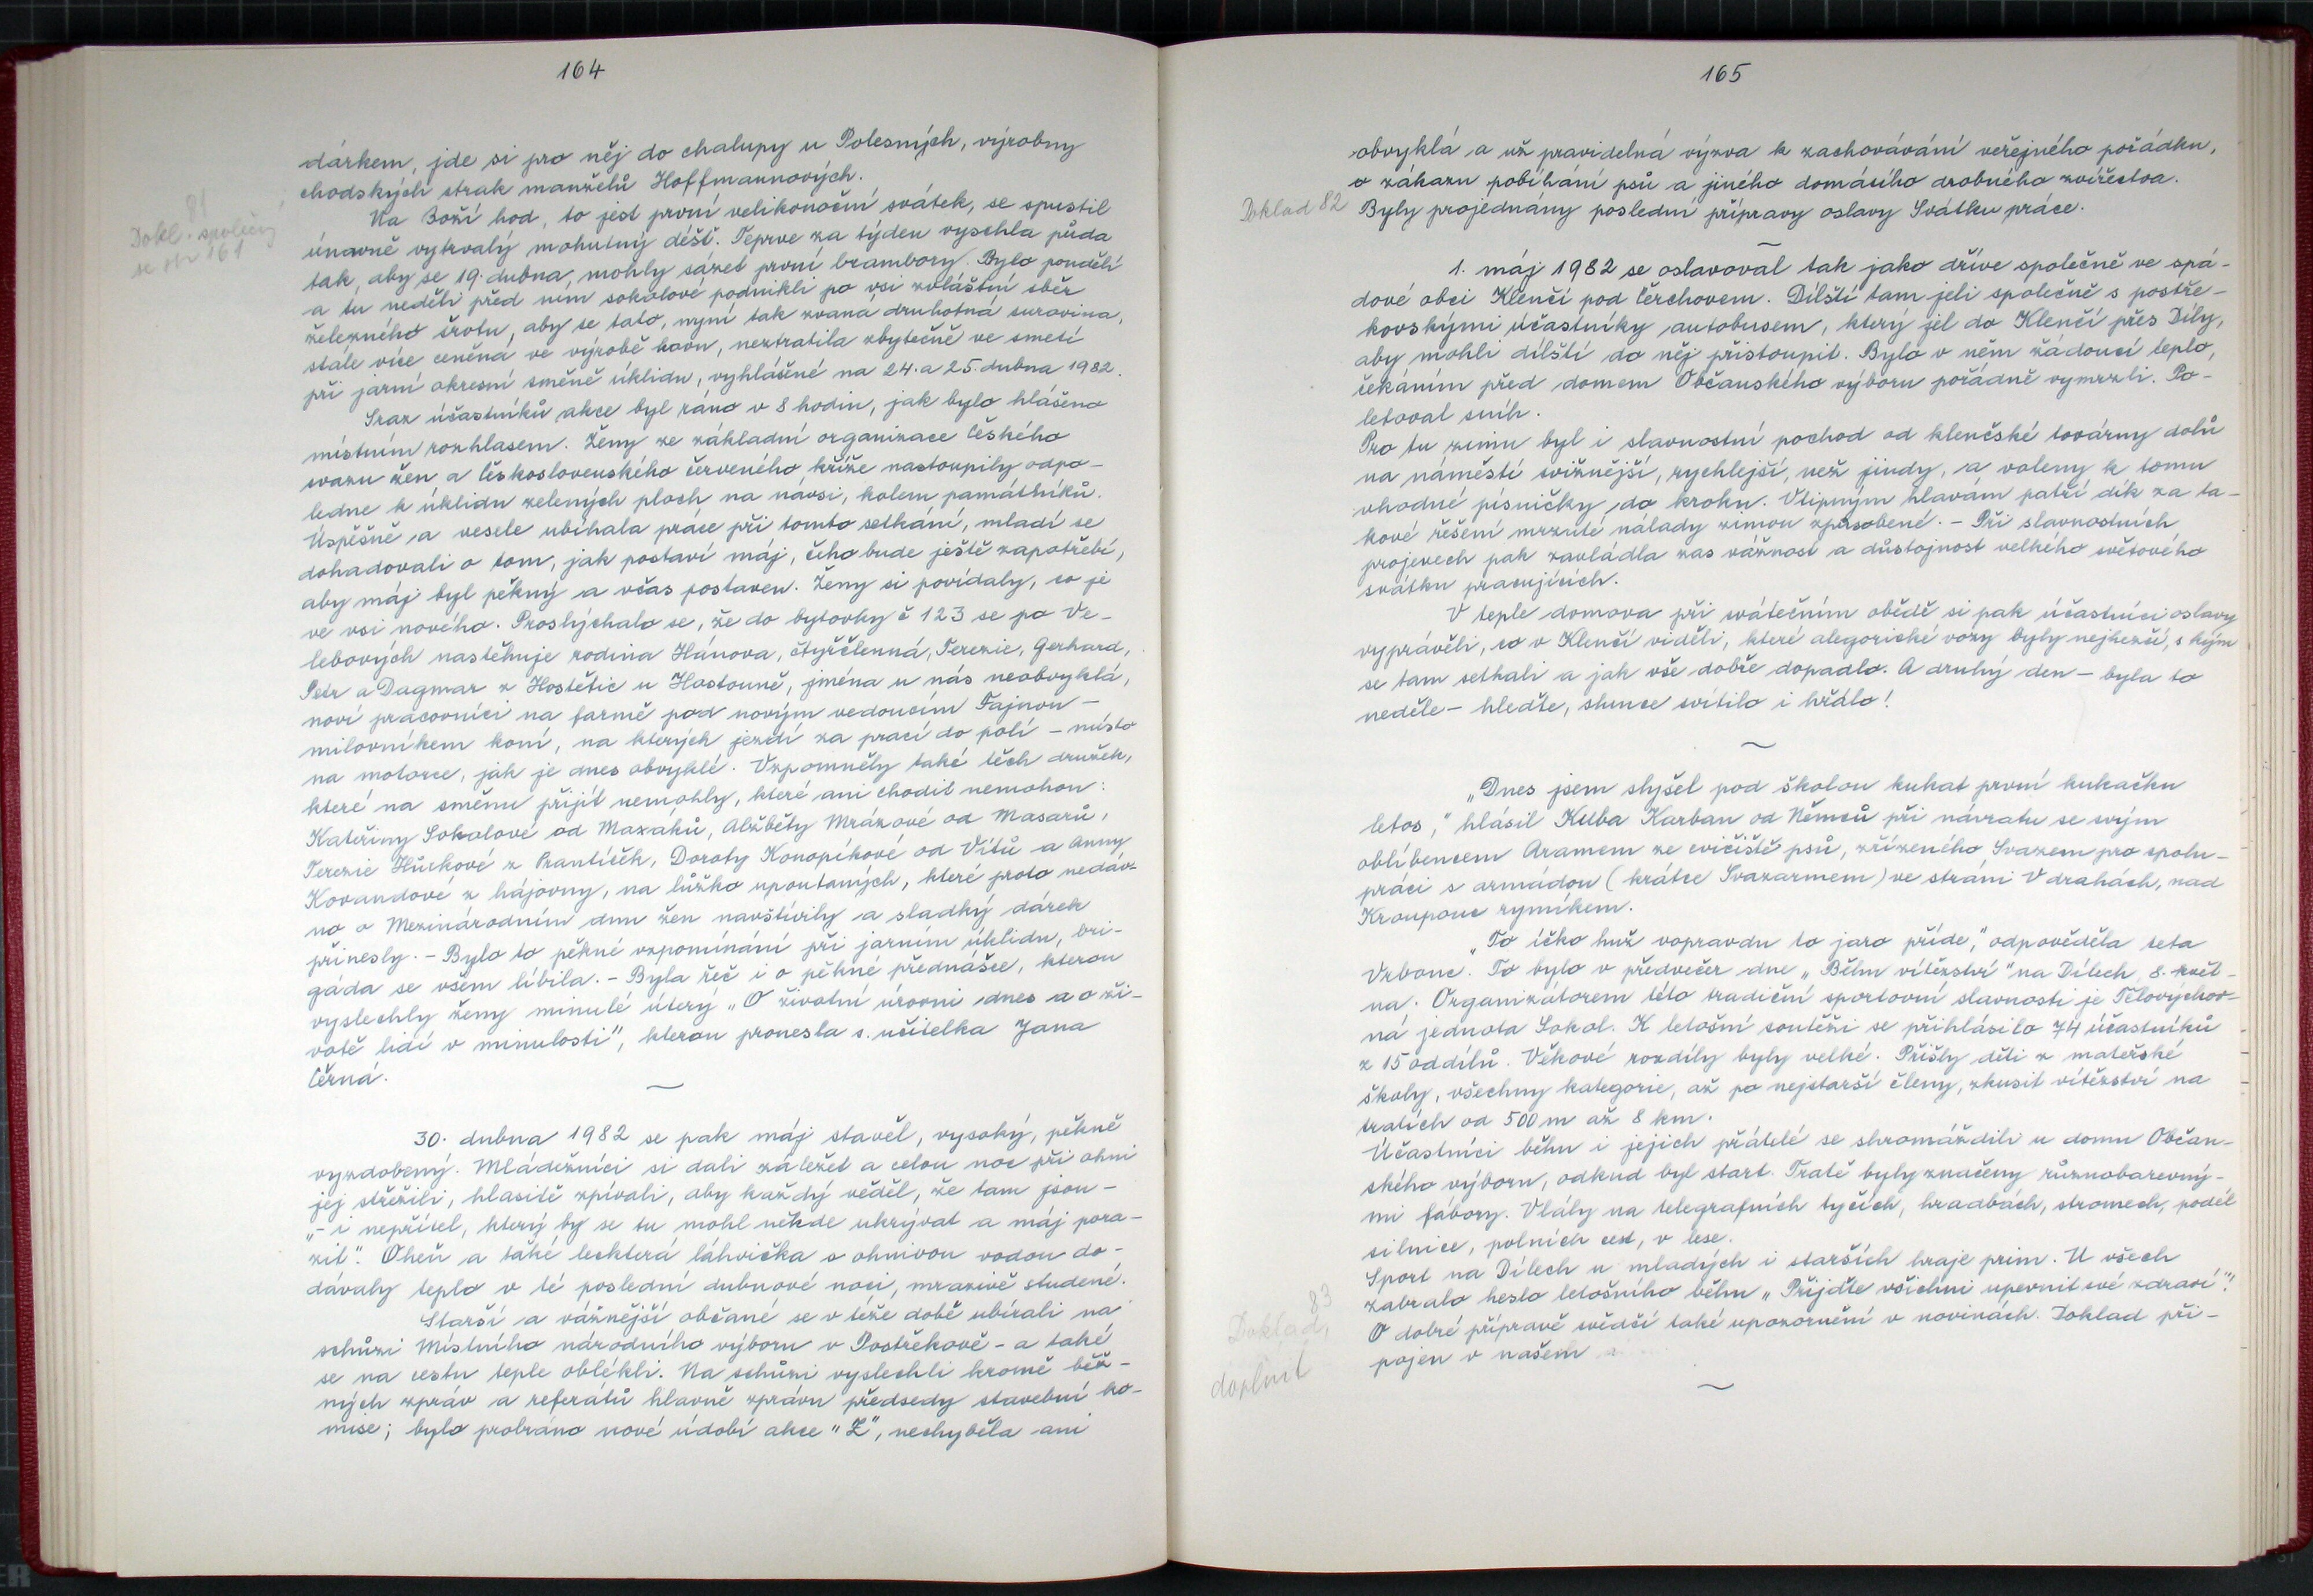 164
dárkem, jde si pro něj do chalupy u Polesných, výrobny
chodských strak manželů Hoffmannových.
Na Boží hod, to jest první velikonoční svátek, se spustil
81
Dokl. společný
se str 161
únavně vytrvalý mohutný déšť. Teprve za týden vyschla půda
tak, aby se 19. dubna, mohly sázet první brambory. Bylo pondělí
a tu neděli před ním sokolové podnikli po vsi zvláštní sběr
železného šrotu, aby se tato, nyní tak zvaná druhotná surovina,
stále více ceněná ve výrobě kovu, neztratila zbytečně ve smetí
při jarní okresní směně úklidu, vyhlášené na 24. a 25. dubna 1982.
Sraz účastníků akce byl ráno v 8 hodin, jak bylo hlášeno
místním rozhlasem. Ženy ze základní organizace Českého
svazu žen a Československého červeného kříže nastoupily odpo-
ledne k úklidu zelených ploch na návsi, kolem památníků.
Úspěšně a vesele ubíhala práce při tomto setkání, mladí se
dohadovali o tom, jak postaví máj, čeho bude ještě zapotřebí,
aby máj byl pěkný a včas postaven. Ženy si povídaly, co je
ve vsi nového. Proslýchalo se, že do bytovky č 123 se po Ve-
lebových nastěhuje rodina Hánova, čtyřčlenná, Terezie, Gerhard,
Petr a Dagmar z Hostětic u Hostouně, jména u nás neobvyklá,
noví pracovníci na farmě pod novým vedoucím Fajnou -
milovníkem koní, na kterých jezdí za prací do polí - místo
na motorce, jak je dnes obvyklé. Vzpomněly také těch družek,
které na směnu přijít nemohly, které ani chodit nemohou:
Kateřiny Sokolové od Maxáků, Alžběty Mrázové od Masarů,
Terezie Hůrkové z Prantiček, Doroty Konopíkové od Vítů a Anny
Kovandové z hájovny, na lůžko upoutaných, které proto nedáv-
no o Mezinárodním dnu žen navštívily a sladký dárek
přinesly. - Bylo to pěkné vzpomínání při jarním úklidu, bri-
gáda se všem líbila. - Byla řeč i o pěkné přednášce, kterou
vyslechly ženy minulé úterý „O životní úrovni dnes a o ži-
votě lidí v minulosti", kterou pronesla s. učitelka Jana
Černá.
30. dubna 1982 se pak máj stavěl, vysoký, pěkně
vyzdobený. Mládežníci si dali záležet a celou noc při ohni
jej střežili, hlasitě zpívali, aby každý věděl, že tam jsou -
„- i nepřítel, který by se tu mohl někde ukrývat a máj pora-
zit." Oheň a také leckterá láhvička s ohnivou vodou do-
dávaly teplo v té poslední dubnové noci, mrazivě studené.
Starší a vážnější občané se v téže době ubírali na
schůzi Místního národního výboru v Postřekově - a také
se na cestu teple oblékli. Na schůzi vyslechli kromě běž-
ných zpráv a referátů hlavně zprávu předsedy stavební ko-
mise; bylo probráno nové údobí akce "Z", nechyběla ani
165
obvyklá a už pravidelná výzva k zachovávání veřejného pořádku,
o zákazu pobíhání psů a jiného domácího drobného zvířectva.
Doklad 82
Byly projednány poslední přípravy oslavy Svátku práce.
1. máj 1982 se oslavoval tak jako dříve společně ve spá-
dové obci Klenčí pod Čerchovem. Dílští tam jeli společně s postře-
kovskými účastníky autobusem, který jel do Klenčí přes Díly,
aby mohli dílští do něj přistoupit. Bylo v něm žádoucí teplo,
čekáním před domem Občanského výboru pořádně vymrzli. Po-
letoval sníh.
Pro tu zimu byl i slavnostní pochod od klenčské továrny dolů
na náměstí svižnější, rychlejší, než jindy, a voleny k tomu
vhodné písničky do kroku. Vtipným hlavám patří dík za ta-
kové řešení mrzuté nálady zimou způsobené. - Při slavnostních
projevech pak zavládla zas vážnost a důstojnost velkého světového
svátku pracujících.
V teple domova při svátečním obědě si pak účastníci oslavy
vyprávěli, co v Klenčí viděli, které alegorické vozy byly nejhezčí, s kým
se tam setkali a jak vše dobře dopadlo. A druhý den - byla to
neděle - hleďte, slunce svítilo i hřálo!
„Dnes jsem slyšel pod školou kukat první kukačku
letos," hlásil Kuba Karban od Němců při návratu se svým
oblíbencem Aramem ze cvičiště psů, zřízeného Svazem pro spolu-
práci s armádou (krátce Svazarmem) ve stráni V drahách, nad
Kroupouc rymíkem.
„To ičko huž vopravdu to jaro příde," odpověděla teta
Vrbouc. To bylo v předvečer dne „Běhu vítězství" na Dílech, 8. květ-
na. Organizátorem této tradiční sportovní slavnosti je Tělovýchov-
ná jednota Sokol. K letošní soutěži se přihlásilo 74 účastníků
z 15 oddílů. Věkové rozdíly byly velké. Přišly děti z mateřské
školy, všechny kategorie, až po nejstarší členy, zkusit vítězství na
tratích od 500 m až 8 km.
Účastníci běhu i jejich přátelé se shromáždili u domu Občan-
ského výboru, odkud byl start. Tratě byly značeny různobarevný-
mi fábory. Vlály na telegrafních tyčích, hradbách, stromech, podél
silnice, polních cest, v lese.
Sport na Dílech u mladých i starších hraje prim. U všech
zabralo heslo letošního běhu „Přijďte všichni upevnit své zdraví"!
83
Doklad,
doplnit
O dobré přípravě svědčí také upozornění v novinách. Doklad při-
pojen v našem